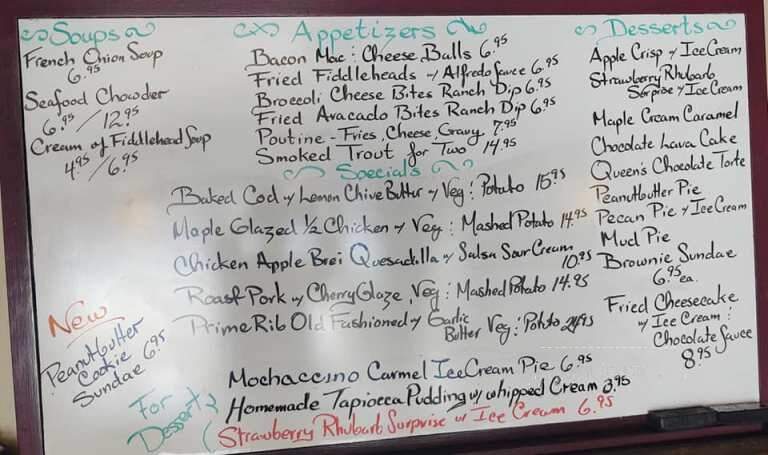 Soups
French Onion Soup
6.95
Seafood Chowder
6.95/12.95
Cream of Fiddlehead Soup
4.95/6.95
Appetizers
Bacon Mac: Cheese Balls 6.95
Fried Fiddleheads w/ Alfredo Sauce 6.95
Broccoli Cheese Bites Ranch Dip 6.95
Fried Avacado Bites Ranch Dip 6.95
Poutine - Fries, Cheese, Gravy 7.95
Smoked Trout for Two 14.95
Specials
Baked Cod w/ Lemon Chive Butter w/ Veg: Potato 15.95
Maple Glazed 1/2 Chicken w/ Veg: Mashed Potato 14.95
Chicken Apple Brei Quesadilla w/ Salsa Sour Cream
10.95
Roast Pork w/ Cherry Glaze, Veg: Mashed Potato 14.95
Prime Rib Old Fashioned w/ Garlic
Butter Veg: Potato 24.95
Desserts
Apple Crisp w/ Ice Cream
Strawberry Rhubarb
Serprise w/ Ice Cream
Maple Cream Caramel
Chocolate Lava Cake
Queen's Chocolate Torte
Peanutbutter Pie
Pecan Pie w/ Ice Cream
Mud Pie
Brownie Sundae
6.95 ea.
Fried Cheesecake
w/ Ice Cream:
Chocolate Sauce
8.95
New
Peanutbutter
Cookie
Sundae 6.95
For
Dessert
Mochaccino Carmel Ice Cream Pie 6.95
Homemade Tapiocca Pudding w/ whipped Cream 3.95
Strawberry Rhubarb Surprise w/ Ice Cream 6.95